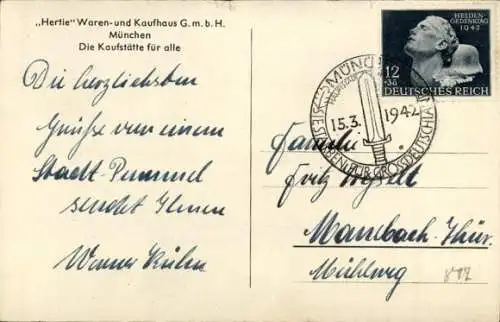 „Hertie“ Waren-und Kaufhaus G. m. b. H.
München
Die Kaufstätte für alle
Die herzlichsten
Grüße von einem
Stadt-Bummel
sendet Ihnen
Werner
HELDEN-
GEDENKTAG
1942
12
+38
DEUTSCHES REICH
MÜNCHEN
15.3. 1942
SIE STARBEN FÜR GROSSDEUTSCHLAND
Familie
Fritz
Mambach-Thür.
Mühlweg